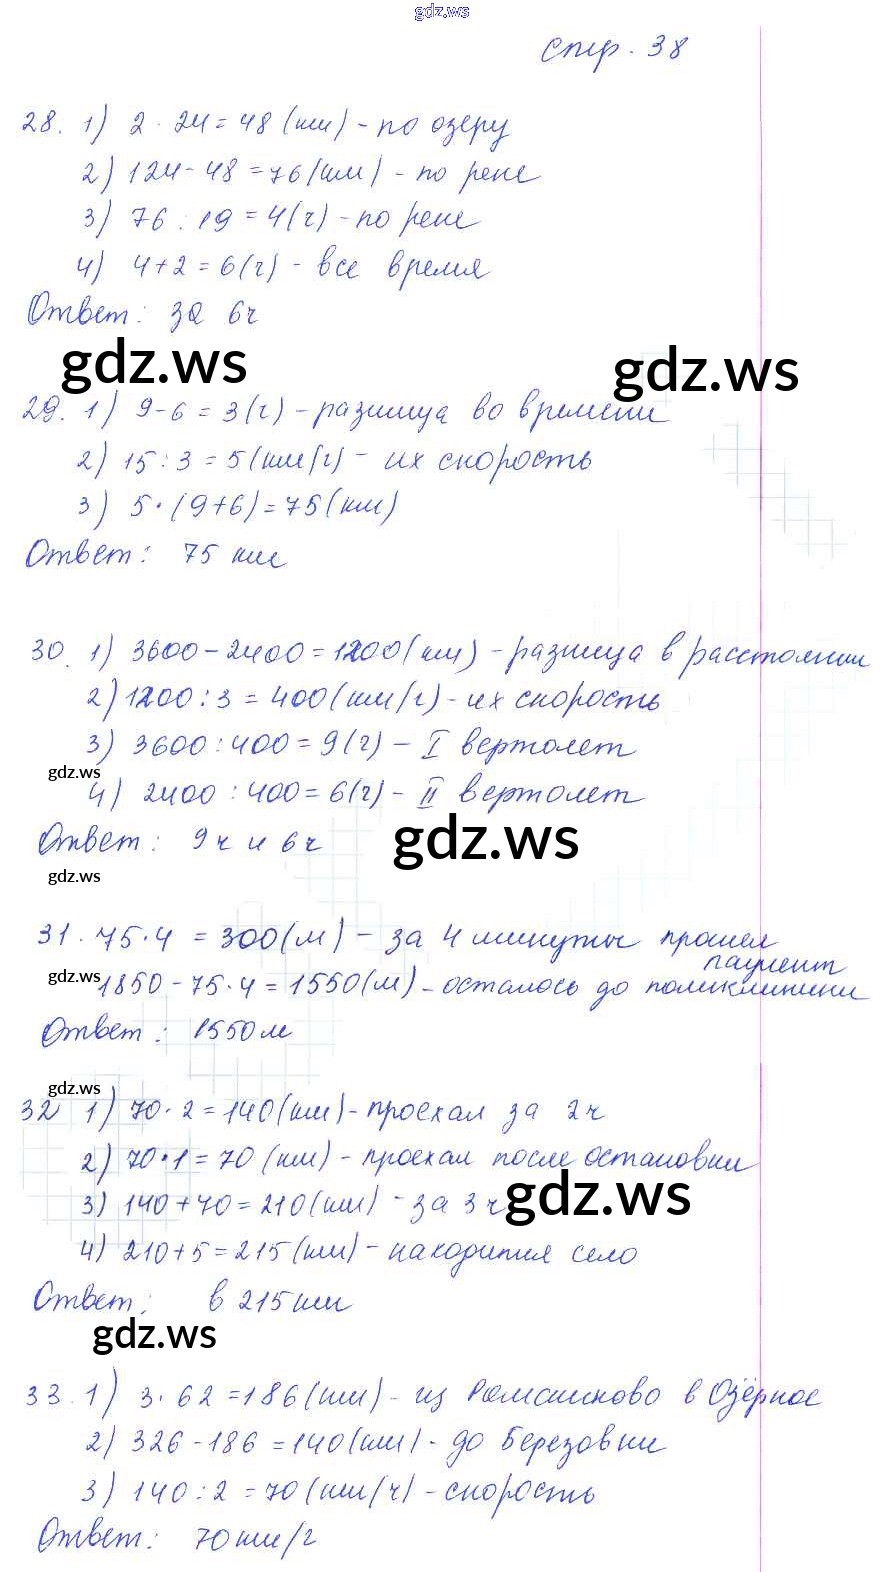 gdz.ws
стр. 38
28. 1) 2 · 24 = 48 (км) - по озеру
2) 124 - 48 = 76 (км) - по реке
3) 76 : 19 = 4 (ч) - по реке
4) 4 + 2 = 6 (ч) - все время
Ответ: за 6 ч
gdz.ws gdz.ws
29. 1) 9 - 6 = 3 (ч) - разница во времени
2) 15 : 3 = 5 (км/ч) - их скорость
3) 5 · (9 + 6) = 75 (км)
Ответ: 75 км
30. 1) 3600 - 2400 = 1200 (км) - разница в расстоянии
2) 1200 : 3 = 400 (км/ч) - их скорость
3) 3600 : 400 = 9 (ч) - I вертолет
gdz.ws
4) 2400 : 400 = 6 (ч) - II вертолет
Ответ: 9 ч и 6 ч
gdz.ws
gdz.ws
31. 75 · 4 = 300 (м) - за 4 минуты прошел
пациент
gdz.ws
1850 - 75 · 4 = 1550 (м) - осталось до поликлиники
Ответ: 1550 м
gdz.ws
32 1) 70 · 2 = 140 (км) - проехал за 2 ч
2) 70 · 1 = 70 (км) - проехал после остановки
3) 140 + 70 = 210 (км) - за 3 ч
gdz.ws
4) 210 + 5 = 215 (км) - находится село
Ответ: в 215 км
gdz.ws
33. 1) 3 · 62 = 186 (км) - из Ромашково в Озёрное
2) 326 - 186 = 140 (км) - до Березовки
3) 140 : 2 = 70 (км/ч) - скорость
Ответ: 70 км/ч